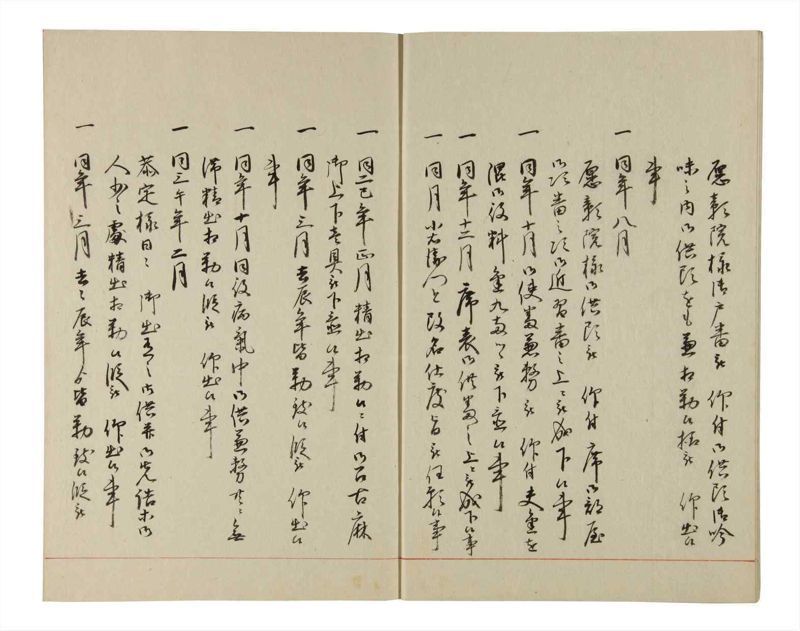 愿彰院様御戸番被 仰付御供頭御吟
味之内御供頭をも兼相勤候様被 仰出候
事
一 同年八月
愿彰院様御供頭被 仰付席御部屋
御頭番之頭御近習番之上ニ被成下候事
一 同年十月御使番兼務被 仰付夫金を
御役料金九両ツヽ被下置候事
一 同年十二月席表御供番之上ニ被成下候事
一 同月小右衛門と改名仕度旨被任願候事
一 同二巳年正月精出相勤候ニ付御召古麻
御上下壱具被下置候事
一 同年三月去辰年皆勤致候段被 仰出候
事
一 同年十月同役病氣中御供兼務無
滞精出相勤候段被 仰出候事
一 同三午年二月
恭定様日々 御出之御供御先詰等
人少之處精出相勤候段被 仰出候事
一 同年三月去辰年皆勤致候段被